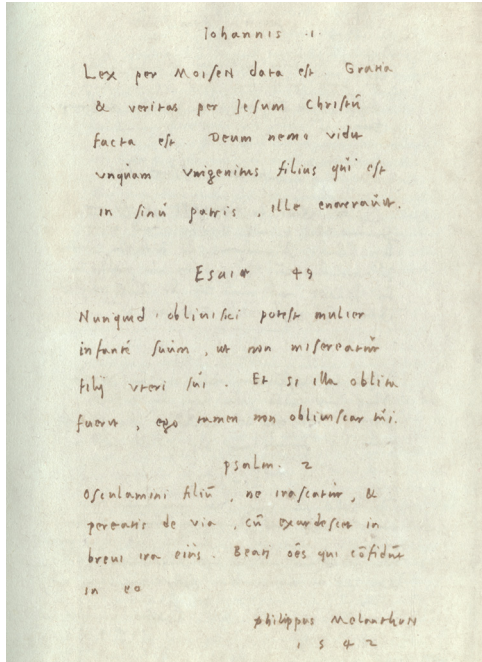 Iohannis .1.
Lex per Moisen data est. Gratia
& veritas per Jesum Christū
facta est. Deum nemo vidit
vnquam vnigenitus filius qui est
in sinu patris, ille enarrauit.
Esaiæ 49
Nunquid obliuisci potest mulier
infantē suum, ut non misereatur
filij vteri sui. Et si illa oblita
fuerit, ego tamen non obliuiscar tui.
psalm. 2
Osculamini filiū, ne irascatur, &
pereatis de via, cū exardescet in
breui ira eius. Beati oēs qui cōfidūt
in eo
philippus Melanthon
1542